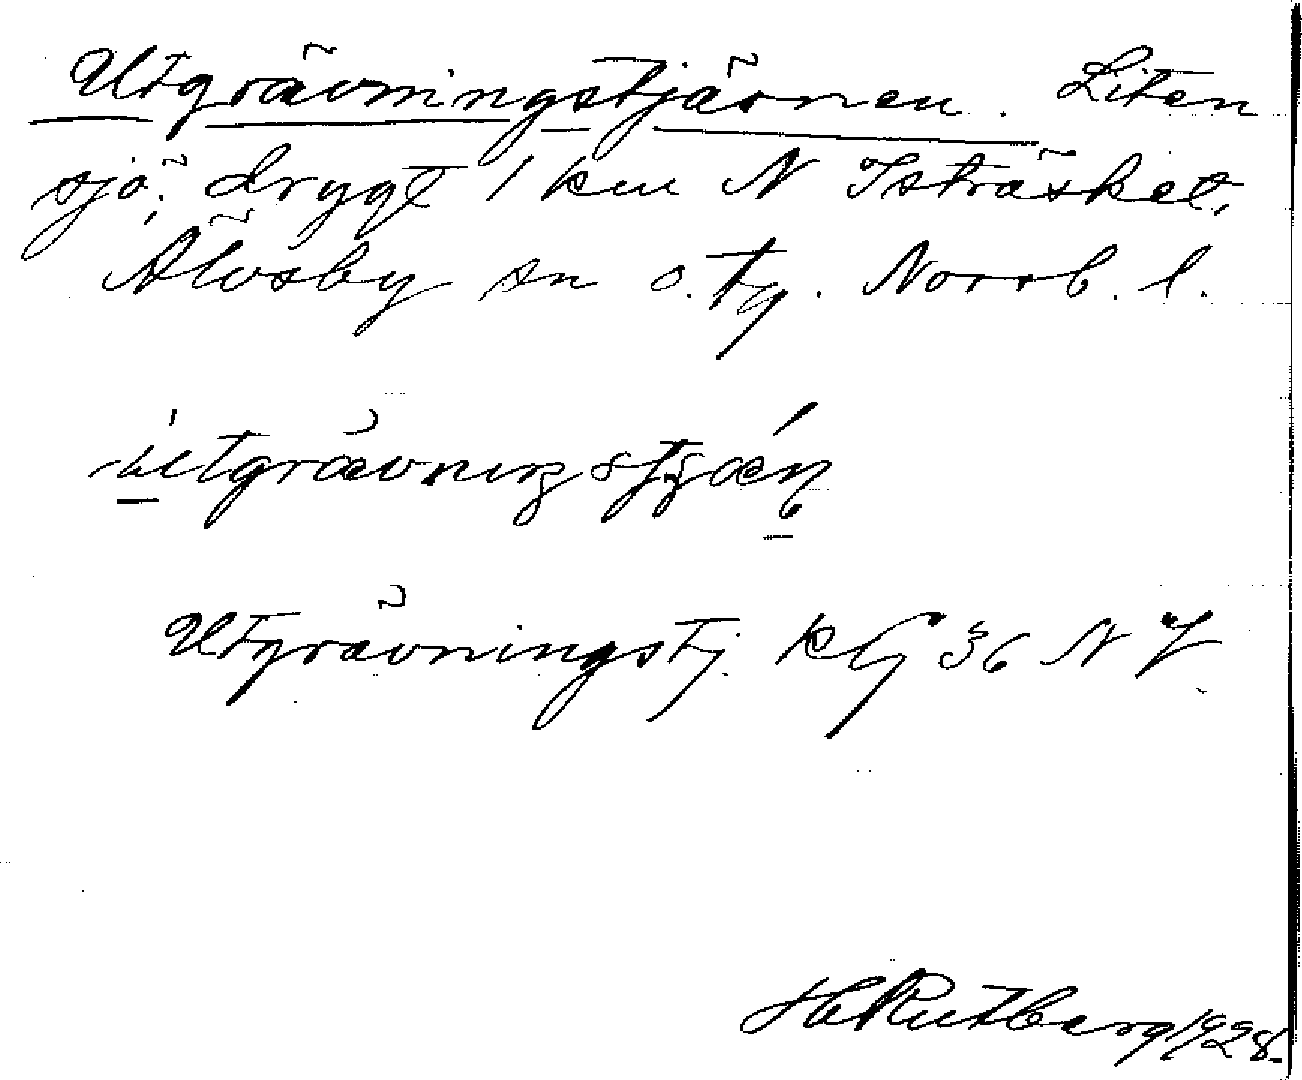 Utgrävningstjärnen. Liten
sjö, drygt 1 km N Isträsket,
Älvsby sn o. tg. Norrb. l.
Utgrävningstj. kbg 36 NV
H Rutberg 1928.